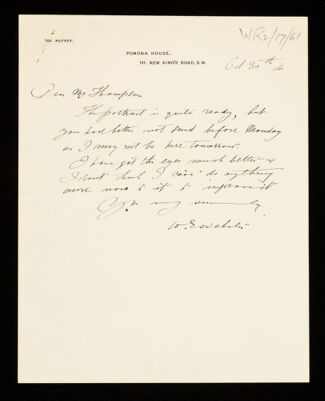 701 PUTNEY.
WR2/17/61
POMONA HOUSE,
111, NEW KING'S ROAD, S.W.
Oct 30th 14
Dear Mr Thompson
The portrait is quite ready, but
you had better not send before Monday
as I may not be here tomorrow.
I have got the eyes much better &
I don't think I can do anything
more now to it to improve it
Yrs very sincerely